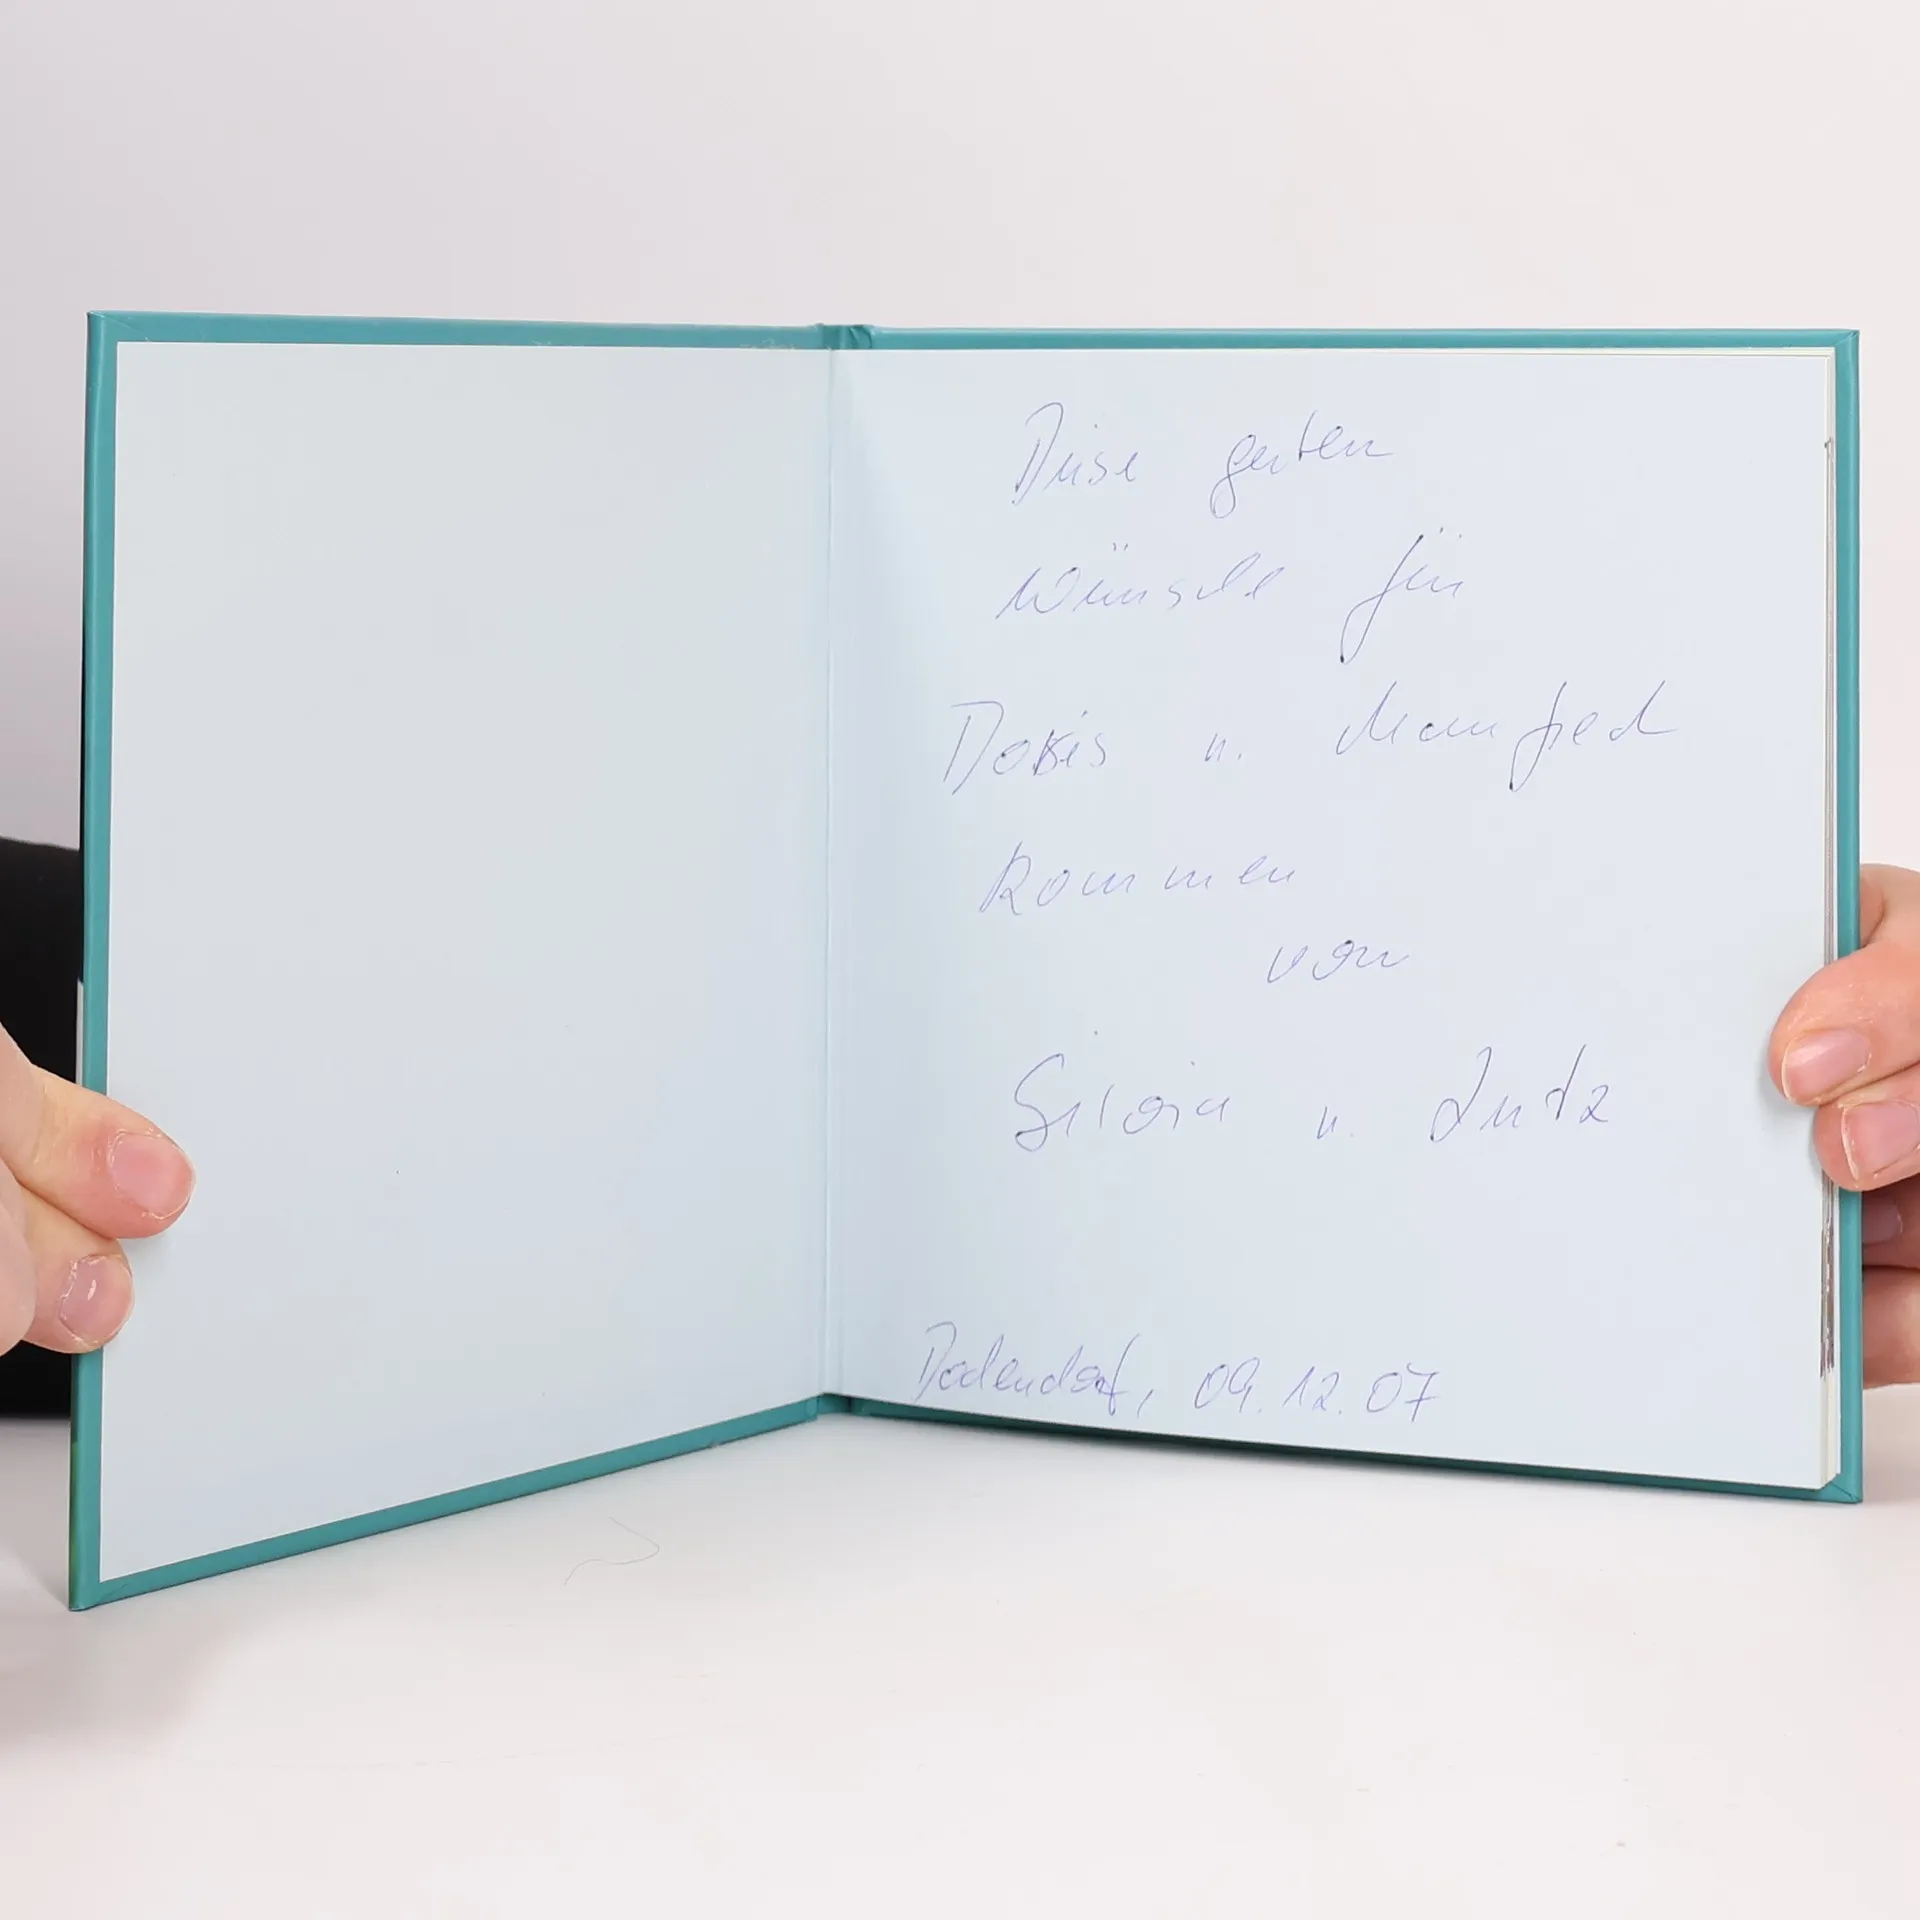 Diese guten
Wünsche für
Doris u. Manfred
kommen
von
Silvia u. Lutz
Dodendorf, 09.12.07